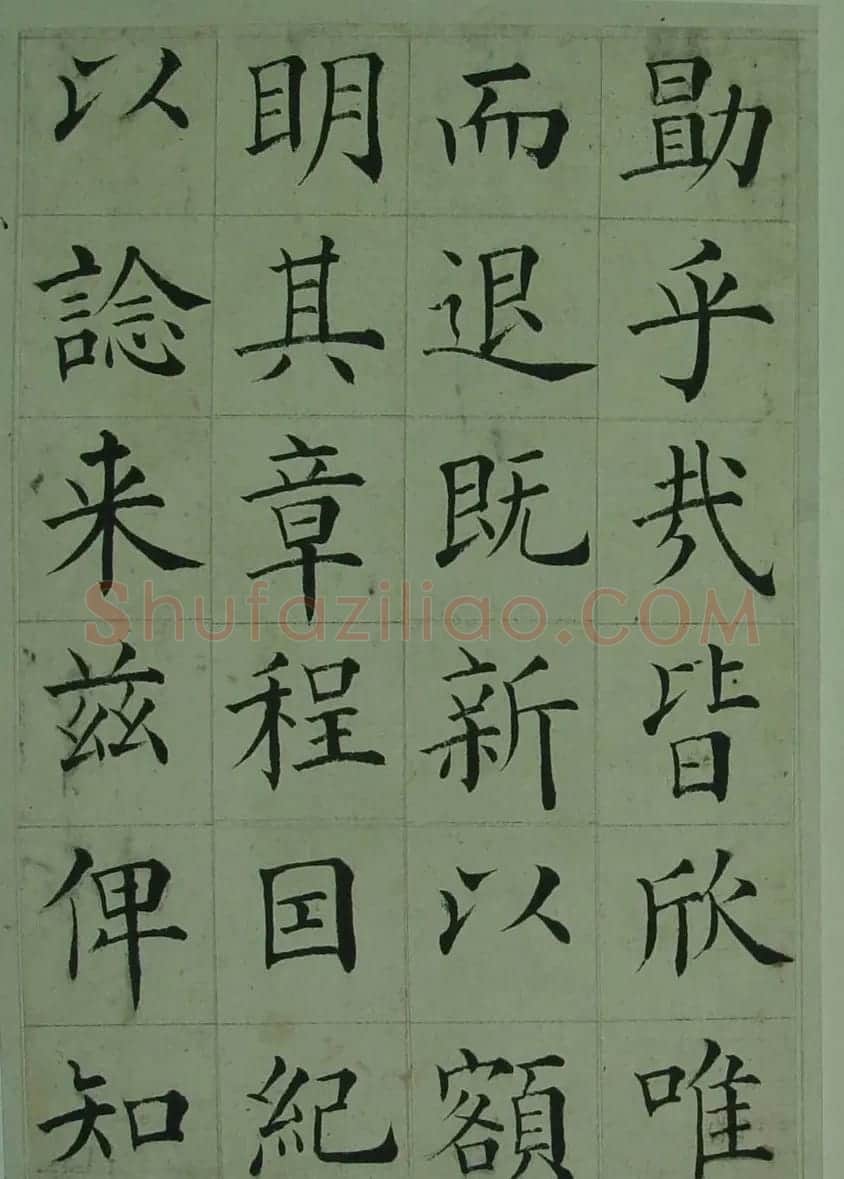 勖乎哉皆欣唯
而退既新以額
眀其章程囙紀
以諗来兹俾知
Shufaziliao.COM